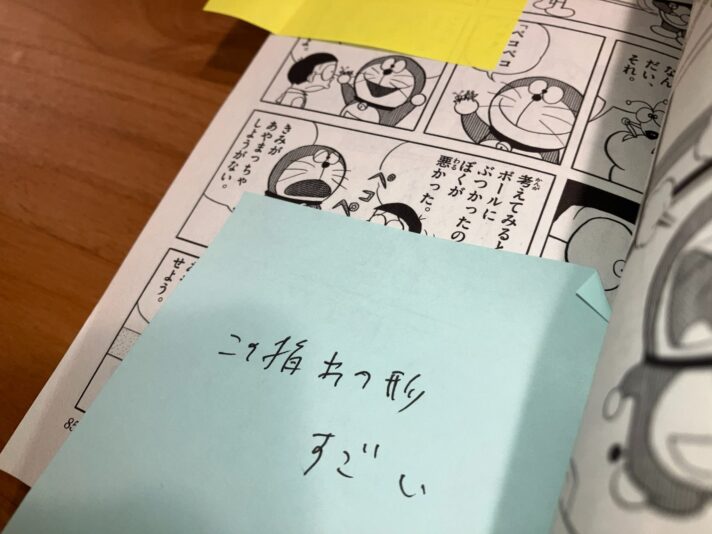 なん
だい、
それ。
「ペコペコ
よ。
考えてみると
ボールに
ぶつかったの
ぼくが
悪かった。
ペコ
ペ
きみが
あやまっちゃ
しようがない。
せよう。
この指わの形
すごい